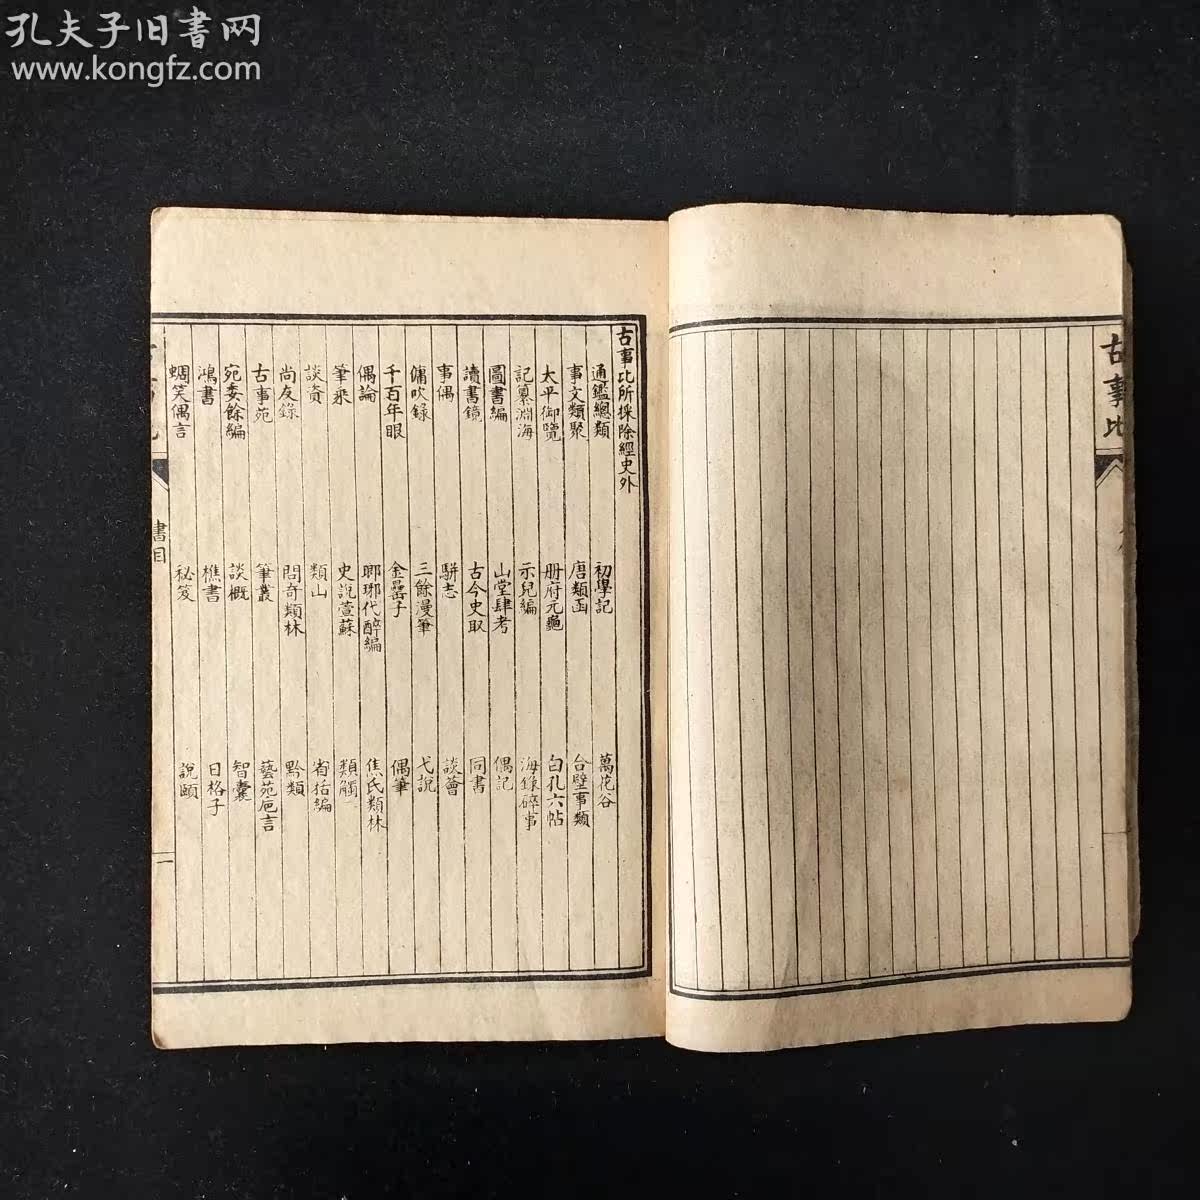 孔夫子旧書网
www.kongfz.com
古事比
古事比所採除經史外
通鑑總類 初學記 萬花谷
事文類聚 唐類函 合璧事類
太平御覽 册府元龜 白孔六帖
記纂淵海 示兒編 海錄碎事
圖書編 山堂肆考 偶記
讀書鏡 古今史取 同書
事偶 駢志 談薈
傭吹錄 三餘漫筆 弋說
千百年眼 金罍子 偶筆
偶論 瑯琊代醉編 焦氏類林
筆乘 史說萱蘇 類觿
談資 類山 省括編
尚友錄 問奇類林 黔類
古事苑 筆叢 藝苑卮言
宛委餘編 談概 智囊
鴻書 樵書 日格子
蜩笑偶言 秘笈 說頤
書目
一